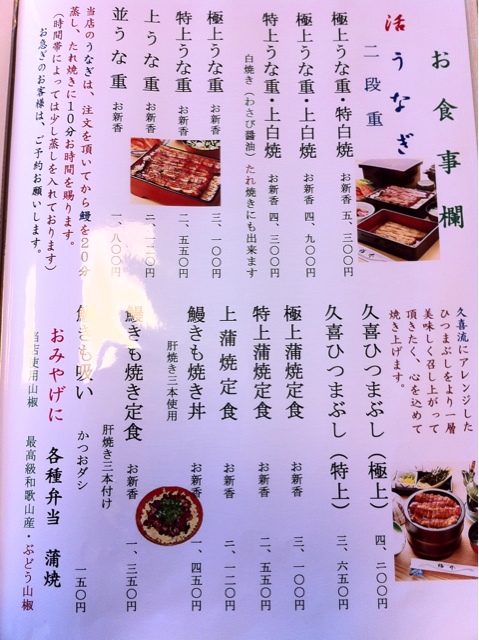 お食事欄
活うなぎ
二段重
極上うな重・特白焼 お新香 五、三〇〇円
極上うな重・上白焼 お新香 四、九〇〇円
特上うな重・上白焼 お新香 四、三〇〇円
白焼き（わさび醤油）たれ焼きにも出来ます
極上うな重 お新香 三、一〇〇円
特上うな重 お新香 二、五五〇円
上うな重 お新香 二、一二〇円
並うな重 お新香 一、八〇〇円
当店のうなぎは、注文を頂いてから鰻を２０分
蒸し、たれ焼きに１０分お時間を賜ります。
（時間帯によっては少し蒸しを入れております）
お急ぎのお客様は、ご予約お願いします。
久喜流にアレンジした
ひつまぶしをより一層
美味しく召し上がって
頂きたく、心を込めて
焼き上げます。
久喜ひつまぶし（極上） 四、二〇〇円
久喜ひつまぶし（特上） 三、六五〇円
極上蒲焼定食 お新香 三、一〇〇円
特上蒲焼定食 お新香 二、五五〇円
上蒲焼定食 お新香 二、一二〇円
鰻きも焼き丼 お新香 一、四五〇円
肝焼き三本使用
鰻きも焼き定食 お新香 一、三五〇円
肝焼き三本付け
鰻きも吸い かつおダシ 一五〇円
おみやげに 各種弁当 蒲焼
当店使用山椒 最高級和歌山産・ぶどう山椒